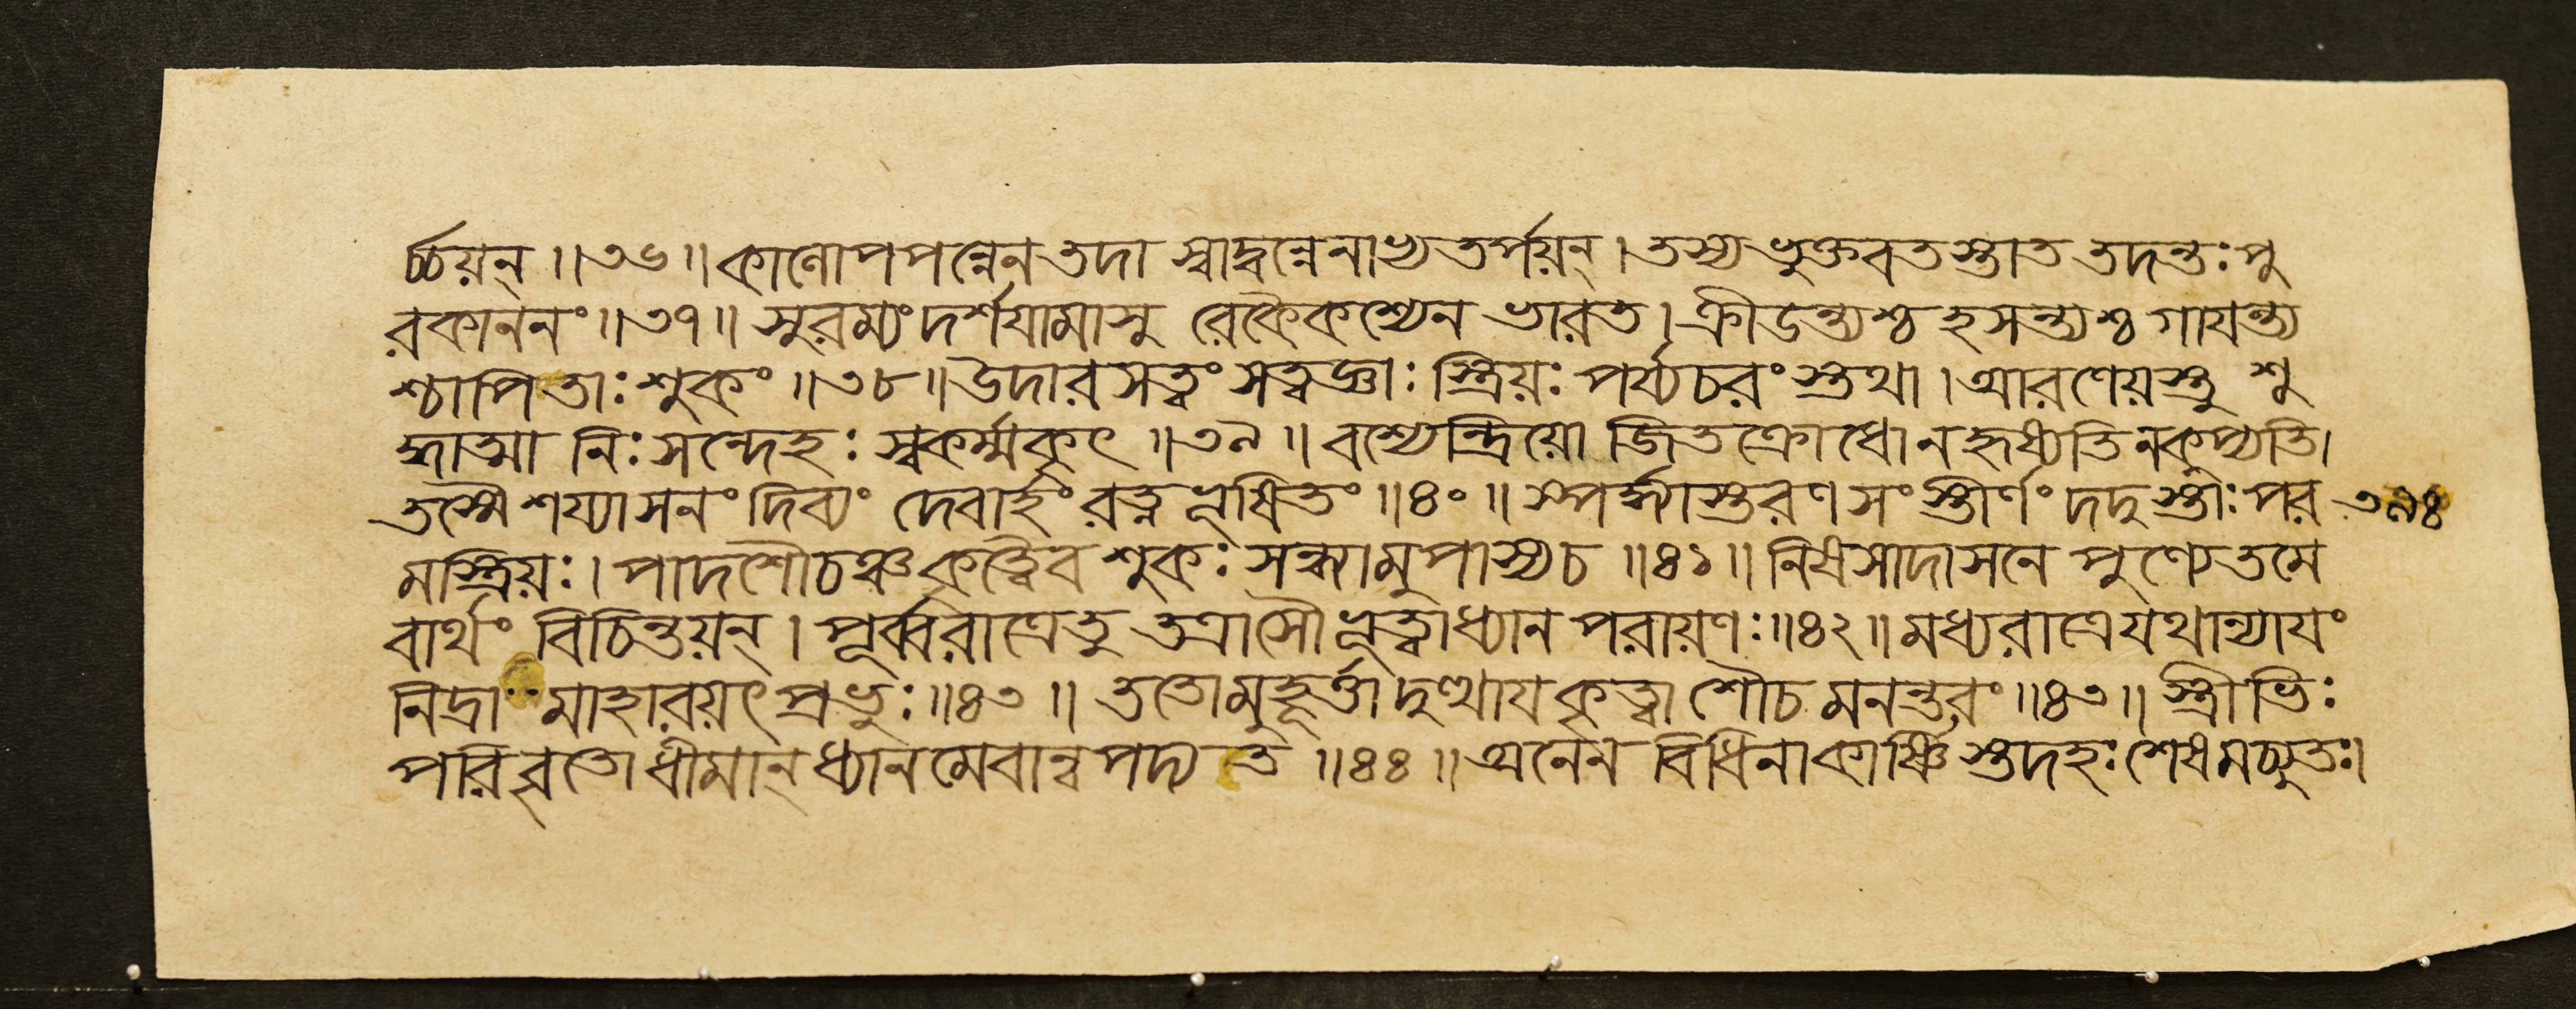 র্চ্চয়ন্ ॥৩৬॥ কাণোপপন্নেন তদা স্বাদ্বন্নেনাভ্যতর্পয়ন্। তস্য ভুক্তবতস্তাত তদন্তঃপু
রকাননং ॥৩৭॥ সুরম্যং দর্শযামাসু রেকৈকশ্যেন ভারত। ক্রীডন্ত্যশ্চ হসন্ত্যশ্চ গাযন্ত্য
শ্চাপি তাঃ শুকং ॥৩৮॥ উদারসত্বং সত্বজ্ঞাঃ স্ত্রিয়ঃ পর্য্যচরংস্তথা। আরণেয়স্তু শু
দ্ধাত্মা নিঃসন্দেহঃ স্বকর্ম্মকৃৎ ॥৩৯॥ বশ্যেন্দ্রিয়ো জিতক্রোধো ন হৃষ্যতি ন কুপ্যতি।
তস্মৈ শয্যাসনং দিব্যং দেবার্হং রত্নভূষিতং ॥৪০॥ স্পর্দ্ধ্যাস্তরণসংস্তীর্ণং দদুস্তাঃ পর ৩৯৪
মস্ত্রিয়ঃ। পাদশৌচঞ্চ কৃত্বৈব শুকঃ সন্ধ্যামুপাস্য চ ॥৪১॥ নিষসাদাসনে পুণ্যে তমে
বার্থং বিচিন্তয়ন্। পূর্ব্বরাত্রে তু তত্রাসৌ ভূত্বা ধ্যানপরায়ণঃ ॥৪২॥ মধ্যরাত্রে যথান্যাযং
নিদ্রা মাহারয়ৎ প্রভুঃ ॥৪৩॥ ততো মুহূর্ত্তাদুত্থায কৃত্বা শৌচমনন্তরং ॥৪৩॥ স্ত্রীভিঃ
পরিবৃতো ধীমান্ ধ্যানমেবান্বপদ্যত ॥৪৪॥ অনেন বিধিনা কার্ষ্ণিস্তদহঃশেষমচ্যুতঃ।